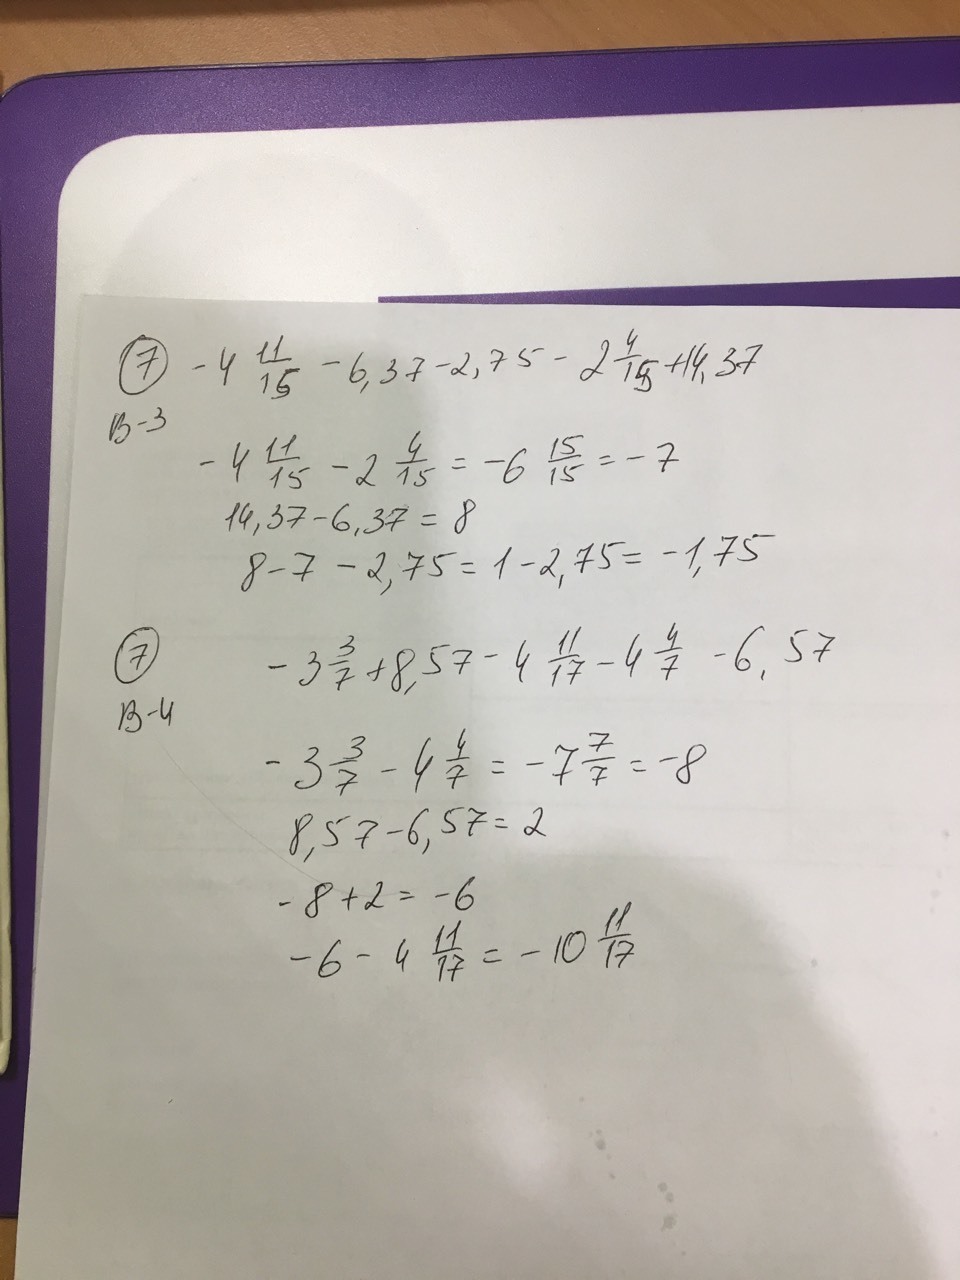 ⑦ -4 11/15 - 6,37 - 2,75 - 2 4/15 + 14,37
В-3
-4 11/15 - 2 4/15 = -6 15/15 = -7
14,37 - 6,37 = 8
8 - 7 - 2,75 = 1 - 2,75 = -1,75
⑦ -3 3/7 + 8,57 - 4 11/17 - 4 4/7 - 6,57
В-4
-3 3/7 - 4 4/7 = -7 7/7 = -8
8,57 - 6,57 = 2
-8 + 2 = -6
-6 - 4 11/17 = -10 11/17